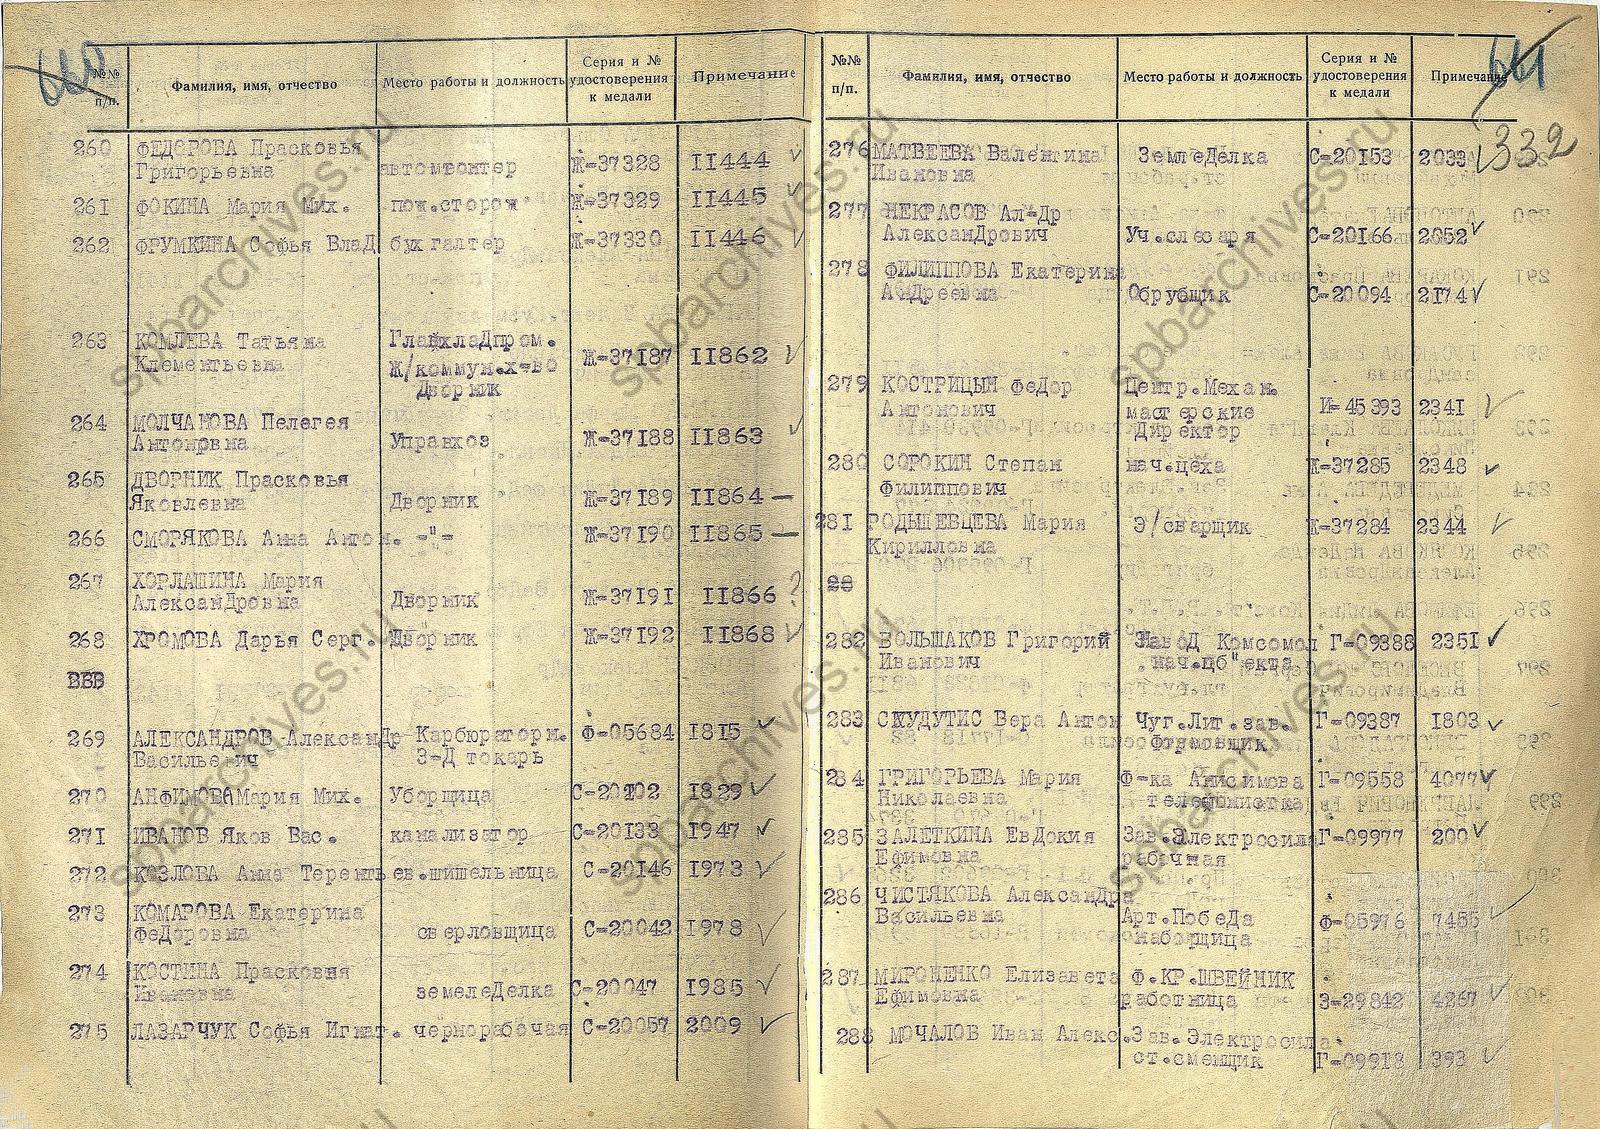 660
№№ п/п.
Фамилия, имя, отчество
Место работы и должность
Серия и № удостоверения к медали
Примечание
260 ФЕДОРОВА Прасковья
Григорьевна автомтонтер Ж-37328 II444
261 ФОКИНА Мария Мих. пож.сторож Ж-37329 II445
262 ФРУМКИНА Софья ВлаД бухгалтер Ж-37330 II446
263 КОМЛЕВА Татьяна Главхладпром.
Клементьевна Ж/коммун.х=во Ж-37I87 II862
Дворник
264 МОЛЧАНОВА Пелегея
Антоновна Управхоз Ж-37I88 II863
265 ДВОРНИК Прасковья
Яковлевна Дворник Ж-37I89 II864 —
266 СМОРЯКОВА Анна Антон. -"- Ж-37I90 II865 —
267 ХОРЛАШИНА Мария
АлексанДровна Дворник Ж-37I9I II866 ?
268 ХРОМОВА Дарья Серг. Дворник Ж-37I92 II868
269 АЛЕКСАНДРОВ АлександДр Карбюраторн. Ф-05684 I8I5
Васильевич З-Д токарь
270 АНФИМОВА Мария Мих. Уборщица С-20I02 I829
27I ИВАНОВ Яков Вас. канализатор С-20I33 I947
272 КОЗЛОВА Анна Терентьев. шишельница С-20I46 I973
273 КОМАРОВА Екатерина
ФеДоровна сверловщица С-20042 I978
274 КОСТИНА Прасковия
Ивановна землеДелка С-20047 I985
275 ЛАЗАРЧУК Софья Игнат. чернорабочая С-20057 2009
661
332
№№ п/п.
Фамилия, имя, отчество
Место работы и должность
Серия и № удостоверения к медали
Примечание
276 МАТВЕЕВА Валентина ЗемлеДелка С-20I53 2033
Ивановна
277 НЕКРАСОВ Ал-Др
АлексанДрович Уч.слесаря С-20I66 2052
278 ФИЛИППОВА Екатерина
АнДреевна Обрубщик С-20094 2I74
279 КОСТРИЦЫН ФеДор Центр.Механ.
Антонович мастерские И-45393 234I
Директор
280 СОРОКИН Степан нач.цеха Ж-37285 2348
Филиппович
28I РОДЫШЕВЦЕВА Мария Э/сварщик Ж-37284 2344
Кирилловна
28
282 БОЛЬШАКОВ Григорий ЗавоД Комсомол Г-09388 235I
Иванович нач.об"екта
283 СКУДУТИС Вера Антон Чуг.Лит.зав. Г-09387 I803
Формовщик
284 ГРИГОРЬЕВА Мария Ф-ка Анисимова Г-09558 4077
Николаевна телефонистка
285 ЗАЛЕТКИНА ЕвДокия Зав.Электросила Г-09977 200
Ефимовна рабочная
286 ЧИСТЯКОВА АлексанДра
Васильевна Арт.ПобеДа Ф-05976 7455
наборщица
287 МИРОНЕНКО Елизавета Ф.КР.ШВЕЙНИК
Ефимовна работница З-29842 4267
288 МОЧАЛОВ Иван Алекс. Зав.Электросила
ст.сменщик Г-099I8 393